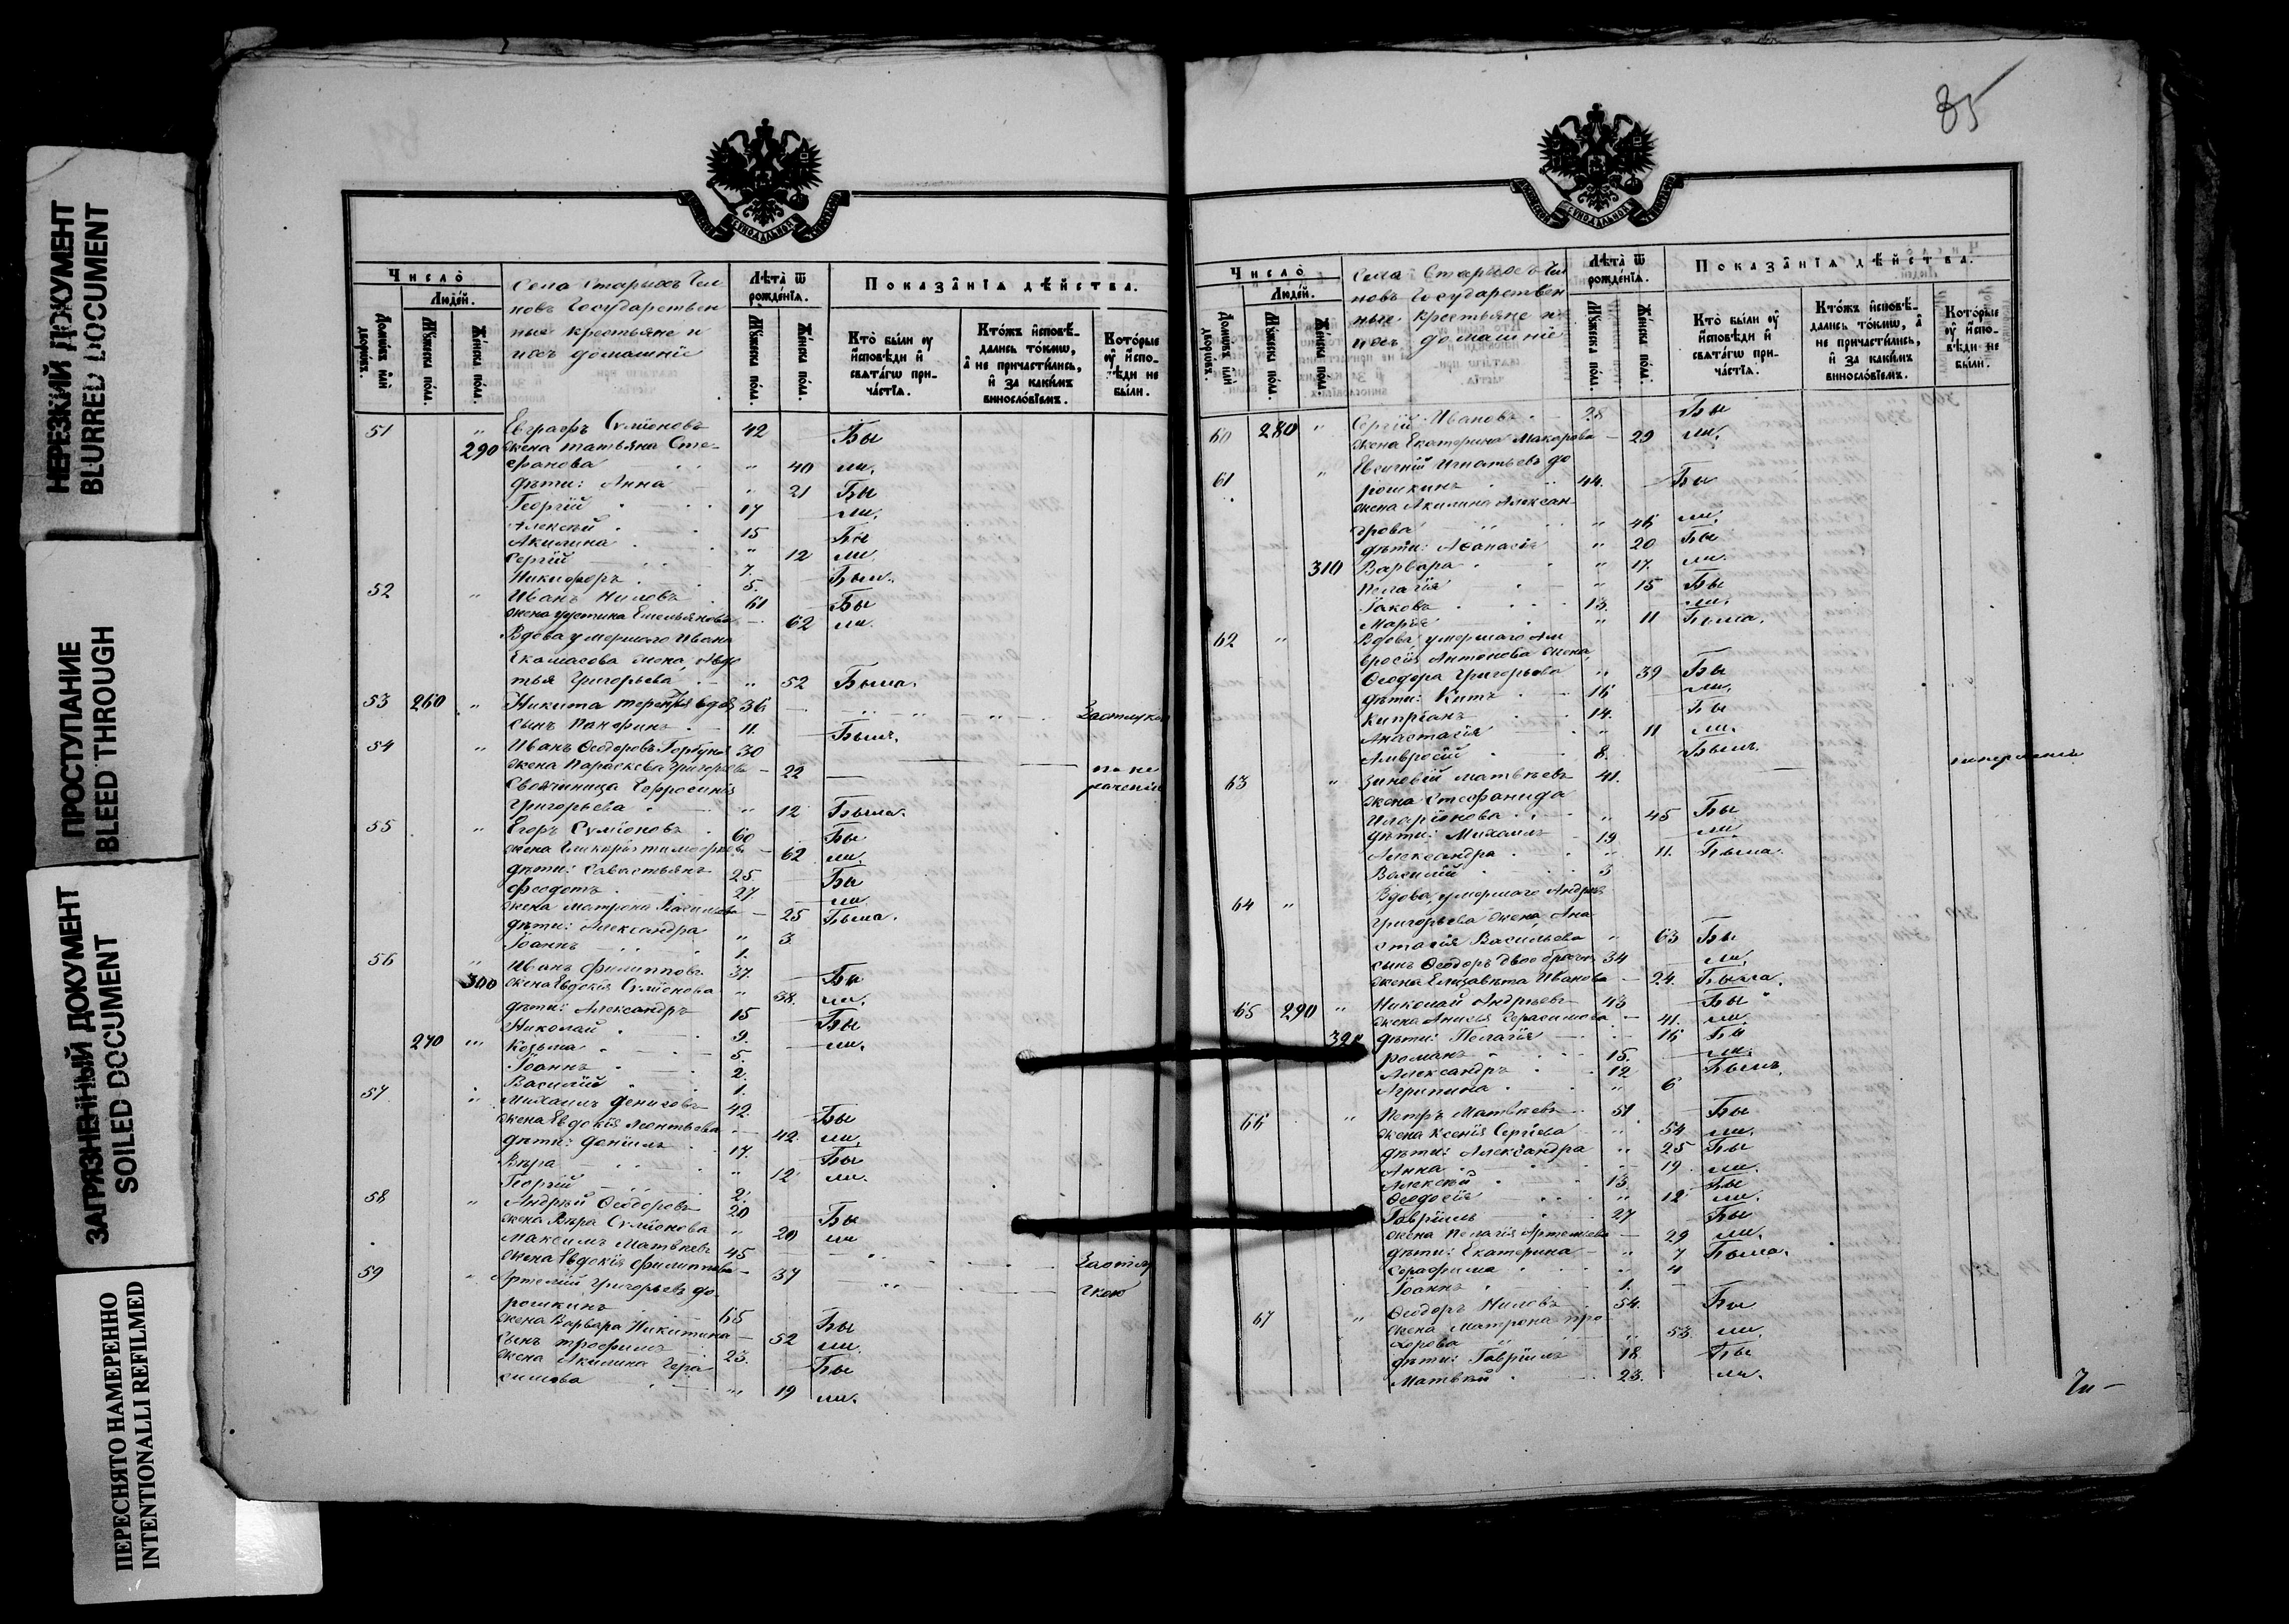 НЕРЕЗКИЙ ДОКУМЕНТ
BLURRED DOCUMENT
ПРОСТУПАНИЕ
BLEED THROUGH
ЗАГРЯЗНЕННЫЙ ДОКУМЕНТ
SOILED DOCUMENT
ПЕРЕСНЯТО НАМЕРЕННО
INTENTIONALLI REFILMED
Число̀
Людéй.
Домѡ́въ и҆лѝ дворѡ́въ.
Мꙋ́жеска пóла.
Жéнска пóла.
Села Старыхъ Чел
новъ Государствен
ные крестьяне и
ихъ домашніе
Лѣта̀ ѿ рождéнїѧ.
Мꙋ́жеска пóла.
Жéнска пóла.
Показа̑нїѧ дѣ́йства.
Кто̀ бы́ли ᲂу҆ и҆сповѣ́ди и҆ свѧта́гѡ прича́стїѧ.
Кто́жъ и҆сповѣ́дались то́кмѡ, а҆ не причасти́лись, и҆ за каки́мъ винослóвїемъ.
Кото́рые ᲂу҆ и҆сповѣ́ди не бы́ли.
51 " Евграфъ Сумїоновъ 42 Бы
290 жена Татьяна Сте-
фанова " 40 ли.
дѣти: Анна " 21 Бы
Георгій 17 ли.
Алексѣй 15 Бы
Акилина " 12 ли.
Сергій 7.
Никифоръ 5. Были.
52 " Иванъ Ниловъ 61 Бы
жена Іустина Емельянова 62 ли.
Вдова умершаго Ивана
жена, Авдо
тья Григорьева " 52 Была.
53 260 " Никита 36
сынъ 11. Былъ.
54 " Иванъ Ѳеодоровъ Горбунъ 30
жена Параскева Григорьева 22
Свояченица Евфросинія
Григорьева " 12 Была.
55 " Егоръ Сумїоновъ 60 Бы
жена Гликерія Тимофеева 62 ли.
дѣти: Савастьянъ 25. Бы
Феодотъ 27 ли.
жена Матрона Васильева 25 Была.
дѣти: Александра " 3
Іоаннъ 1.
56 " Иванъ Филипповъ 37. Бы
300 жена Евдокія Сумїонова " 38. ли.
дѣти: Александръ 15 Бы
Николай 9. ли.
270 " Козьма 5.
Іоаннъ 2.
Василій 1.
57 " Михаилъ Денисовъ 42. Бы
жена Евдокія Леонтьева 42. ли.
дѣти: Даніилъ 17. Бы
Вѣра " 12 ли.
Георгій 2.
58 " Андрей Ѳеодоровъ 20 Бы
жена Вѣра Сумїонова " 20 ли
Максимъ Матвѣевъ 45
жена Евдокія Филиппова 37
59 " Артемій Григорьевъ До
рошкинъ 65 Бы
жена Варвара Никитина 52 ли.
сынъ Трофимъ 23. Бы
жена Акилина Гера
симова " 19 ли.
85
Число̀
Людéй.
Домѡ́въ и҆лѝ дворѡ́въ.
Мꙋ́жеска пóла.
Жéнска пóла.
Села Старыхъ Чел
новъ Государствен
ные крестьяне и
ихъ домашніе
Лѣта̀ ѿ рождéнїѧ.
Мꙋ́жеска пóла.
Жéнска пóла.
Показа̑нїѧ дѣ́йства.
Кто̀ бы́ли ᲂу҆ и҆сповѣ́ди и҆ свѧта́гѡ прича́стїѧ.
Кто́жъ и҆сповѣ́дались то́кмѡ, а҆ не причасти́лись, и҆ за каки́мъ винослóвїемъ.
Кото́рые ᲂу҆ и҆сповѣ́ди не бы́ли.
60 280 " Сергій Ивановъ 28 Бы
жена Екатерина Макарова 29 ли.
61 " Евсигній Игнатьевъ До
рошкинъ 44. Бы
жена Акилина Алексан
дрова " 46 ли.
дѣти: Аѳанасія " 20 Бы
310 Варвара " 17. ли.
Пелагія " 15 Бы
Іаковъ 13. ли.
Марія " 11 Была.
62 " Вдова умершаго Ам
вросія Антонова жена,
Ѳеодора Григорьева " 39 Бы
дѣти: Титъ 16 ли.
Кипріанъ 14. Бы
Анастасія " 11 ли.
Амвросій 8. Былъ.
63 " Зиновій Матвѣевъ 41.
жена Стефанида
Иларіонова " 45 Бы
дѣти: Михаилъ 19 ли
Александра " 11. Была.
Василій 3
64 " Вдова умершаго Андрея
Григорьева жена, Ана
стасія Васильева " 63 Бы
сынъ Ѳеодоръ 34 ли.
жена Елизавета Иванова 24. Была.
65 290 " Николай Андреевъ 43 Бы
жена Анисья Герасимова 41. ли.
320 дѣти: Пелагія 16 Бы
Романъ 15. ли.
Александръ 12 Былъ.
Агрипина " 6
66 " Петръ Матвѣевъ 51 Бы
жена Ксенія Сергіева " 54 ли.
дѣти: Александра " 25 Бы
Анна 19 ли.
Алексѣй 13. Бы
Ѳеодосія " 12 ли.
Гавріилъ 27 Бы
жена Пелагія Артемьева 29 ли.
дѣти: Екатерина " 7 Была.
Серафима " 4
Іоаннъ 1.
67 " Ѳеодоръ Ниловъ 54. Бы
жена Матрона Про
хорова " 53. ли.
дѣти: Гавріилъ 18 Бы
Матвѣй 23. ли.